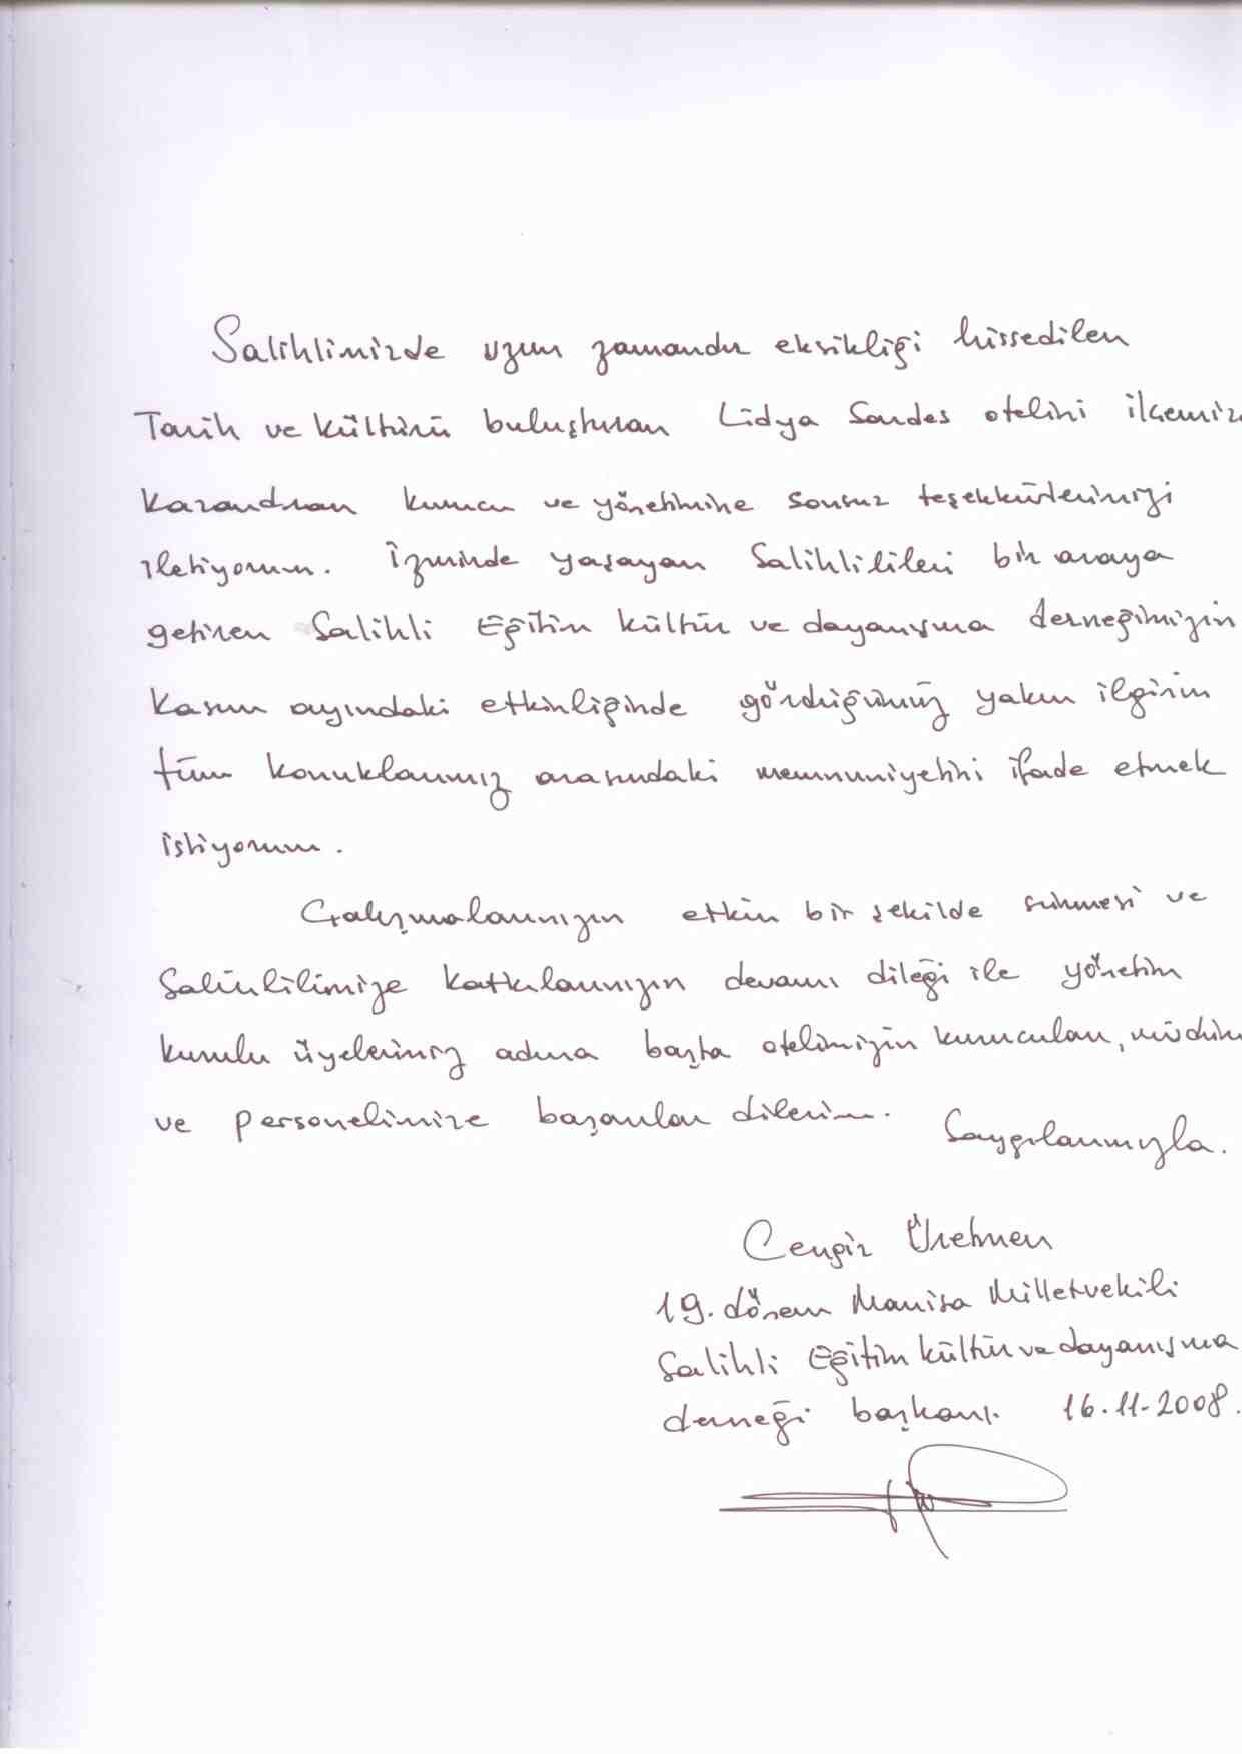 Salihlimizde uzun zamandır eksikliği hissedilen
Tarih ve kültürü buluşturan Lidya Sardes otelini ilçemiz
kazandıran kurucu ve yönetimine sonsuz teşekkürlerimizi
iletiyorum. İzmirde yaşayan Salihlilileri bir araya
getiren Salihli Eğitim kültür ve dayanışma derneğimizin
Kasım ayındaki etkinliğinde gördüğümüz yakın ilginin
tüm konuklarımız arasındaki memnuniyetini ifade etmek
istiyorum.
Çalışmalarınızın etkin bir şekilde sürmesi ve
Salihlilimize katkılarınızın devamı dileği ile yönetim
kurulu üyelerimiz adına başta otelimizin kurucuları, müdürü
ve personelimize başarılar dilerim. Saygılarımızla.
Cengiz Üretmen
19. dönem Manisa Milletvekili
Salihli Eğitim kültür ve dayanışma
derneği başkanı. 16.11-2008.